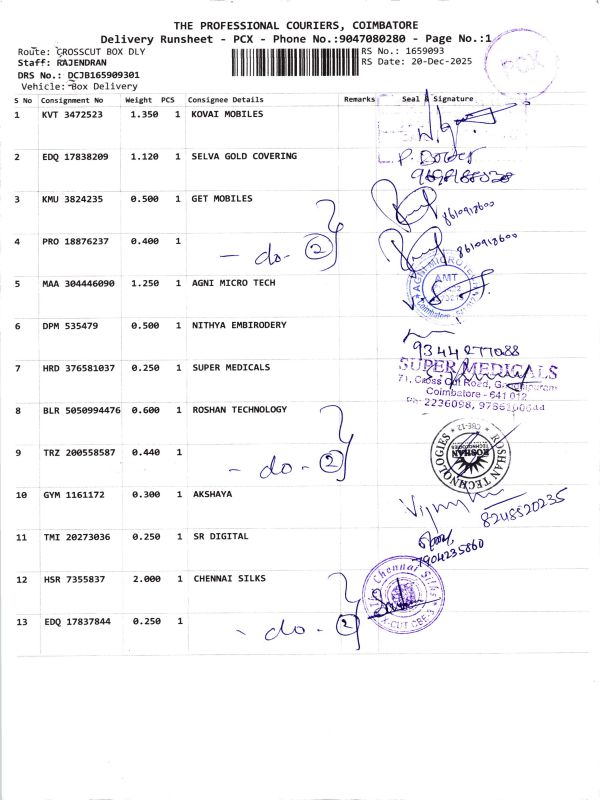 THE PROFESSIONAL COURIERS, COIMBATORE
Delivery Runsheet - PCX - Phone No.:9047080280 - Page No.:1
Route: CROSSCUT BOX DLY
RS No.: 1659093
Staff: RAJENDRAN
RS Date: 20-Dec-2025
DRS No.: DCJB165909301
Vehicle: Box Delivery
PCX
S No Consignment No Weight PCS Consignee Details Remarks Seal & Signature
1 KVT 3472523 1.350 1 KOVAI MOBILES
2 EDQ 17838209 1.120 1 SELVA GOLD COVERING
3 KMU 3824235 0.500 1 GET MOBILES 8610918600
4 PRO 18876237 0.400 1 - do - 2 8610918600
5 MAA 304446090 1.250 1 AGNI MICRO TECH
AGNI MICROTECH
AMT
6 DPM 535479 0.500 1 NITHYA EMBIRODERY
9344277088
7 HRD 376581037 0.250 1 SUPER MEDICALS
SUPER MEDICALS
71, Cross Cut Road, Gandhipuram
Coimbatore - 641 012
Ph: 2236098,
8 BLR 5050994476 0.600 1 ROSHAN TECHNOLOGY
ROSHAN TECHNOLOGIES * CBE-12 *
ROSHAN
TECHNOLOGIES
9 TRZ 200558587 0.440 1 - do - 2
10 GYM 1161172 0.300 1 AKSHAYA
8248520235
11 TMI 20273036 0.250 1 SR DIGITAL
7904235860
12 HSR 7355837 2.000 1 CHENNAI SILKS
The Chennai Silks
X-CUT CBE-3
13 EDQ 17837844 0.250 1 - do - 2